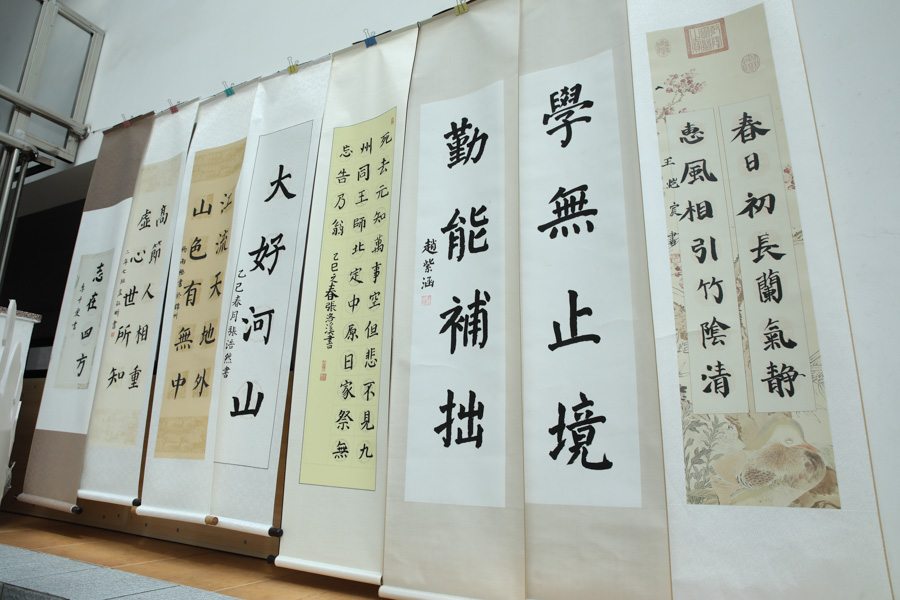 春日初長蘭氣静
惠風相引竹陰清
學無止境
勤能補拙
趙紫涵
死去元知萬事空但悲不見九
州同王師北定中原日家祭無
忘告乃翁
乙巳之春張洛溪書
大好河山
乙巳春月張浩然書
江流天地外
山色有無中
高節人相重
虛心世所知
志在四方